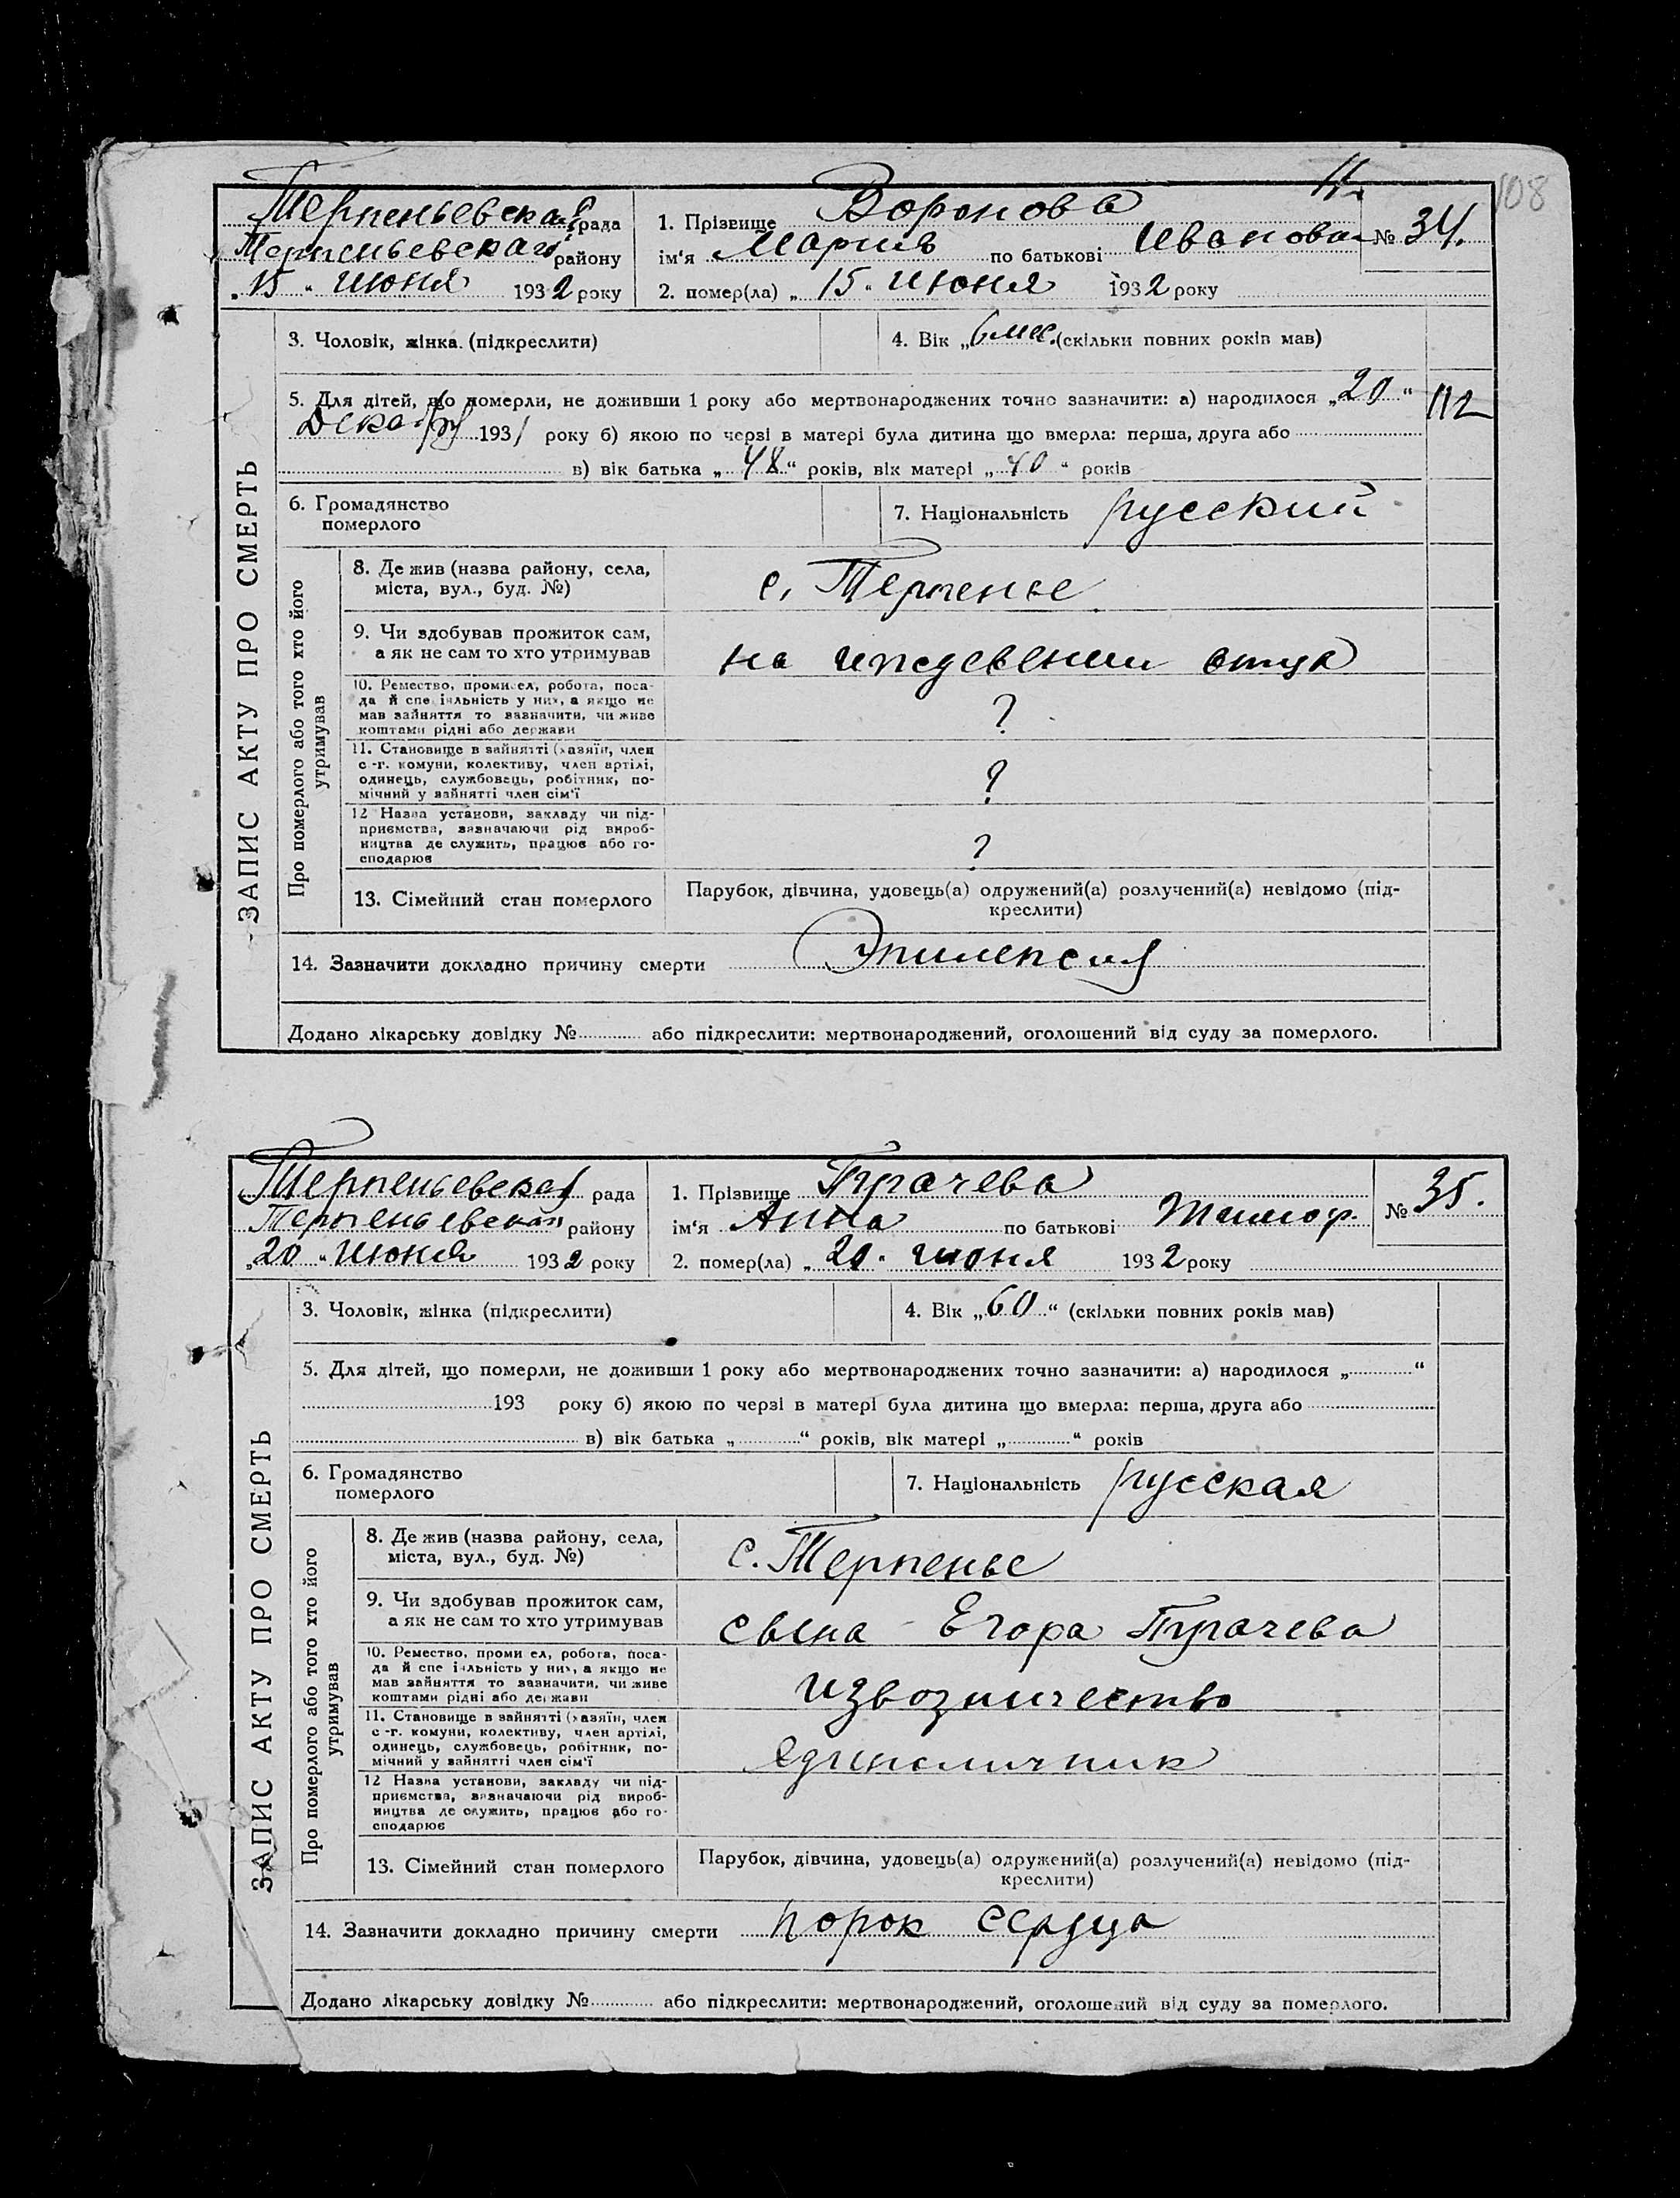 108
Терпеньевская рада
Терпеньевскаго району
„15“ Июня 1932 року
1. Прізвище Воронова
ім‘я Мария по батькові Иванова
№ 34.
2. помер(ла) „15“ Июня 1932 року
ЗАПИС АКТУ ПРО СМЕРТЬ
3. Чоловік, жінка (підкреслити)
4. Вік „6 мес.“ (скільки повних років мав)
5. Для дітей, що померли, не доживши 1 року або мертвонароджених точно зазначити: а) народилося „20“
Декабря 1931 року б) якою по черзі в матері була дитина що вмерла: перша, друга або
в) вік батька „48“ років, вік матері „40“ років
112
6. Громадянство
померлого
7. Національність русский
Про померлого або того хто його
утримував
8. Де жив (назва району, села,
міста, вул., буд. №)
с. Терпенье
9. Чи здобував прожиток сам,
а як не сам то хто утримував
на иждевении отца
10. Ремество, промисел, робота, поса-
да й спеціяльність у них, а якщо не
мав зайняття то зазначити, чи живе
коштами рідні або держави
?
11. Становище в зайнятті (хазяїн, член
с-г. комуни, колективу, член артілі,
одинець, службовець, робітник, по-
мічний у зайнятті член сім‘ї
?
12 Назва установи, закладу чи під-
приємства, зазначаючи рід вироб-
ництва де служить, працює або го-
сподарює
?
13. Сімейний стан померлого
Парубок, дівчина, удовець(а) одружений(а) розлучений(а) невідомо (під-
креслити)
14. Зазначити докладно причину смерти Эпилепсия
Додано лікарську довідку № або підкреслити: мертвонароджений, оголошений від суду за померлого.
Терпеньевская рада
Терпеньевская району
„20“ Июня 1932 року
1. Прізвище Пугачева
ім‘я Анна по батькові Тимоф.
№ 35.
2. помер(ла) „20“ июня 1932 року
ЗАПИС АКТУ ПРО СМЕРТЬ
3. Чоловік, жінка (підкреслити)
4. Вік „60“ (скільки повних років мав)
5. Для дітей, що померли, не доживши 1 року або мертвонароджених точно зазначити: а) народилося „ “
193 року б) якою по черзі в матері була дитина що вмерла: перша, друга або
в) вік батька „ “ років, вік матері „ “ років
6. Громадянство
померлого
7. Національність русская
Про померлого або того хто його
утримував
8. Де жив (назва району, села,
міста, вул., буд. №)
с. Терпенье
9. Чи здобував прожиток сам,
а як не сам то хто утримував
сына Егора Пугачева
10. Ремество, промисел, робота, поса-
да й спеціяльність у них, а якщо не
мав зайняття то зазначити, чи живе
коштами рідні або держави
извозничество
11. Становище в зайнятті (хазяїн, член
с-г. комуни, колективу, член артілі,
одинець, службовець, робітник, по-
мічний у зайнятті член сім‘ї
Единоличник
12 Назва установи, закладу чи під-
приємства, зазначаючи рід вироб-
ництва де служить, працює або го-
сподарює
13. Сімейний стан померлого
Парубок, дівчина, удовець(а) одружений(а) розлучений(а) невідомо (під-
креслити)
14. Зазначити докладно причину смерти порок сердца
Додано лікарську довідку № або підкреслити: мертвонароджений, оголошений від суду за померлого.